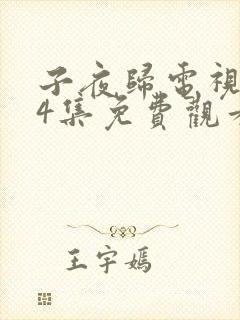 子夜歸電視
4集免費觀
王宇嫣